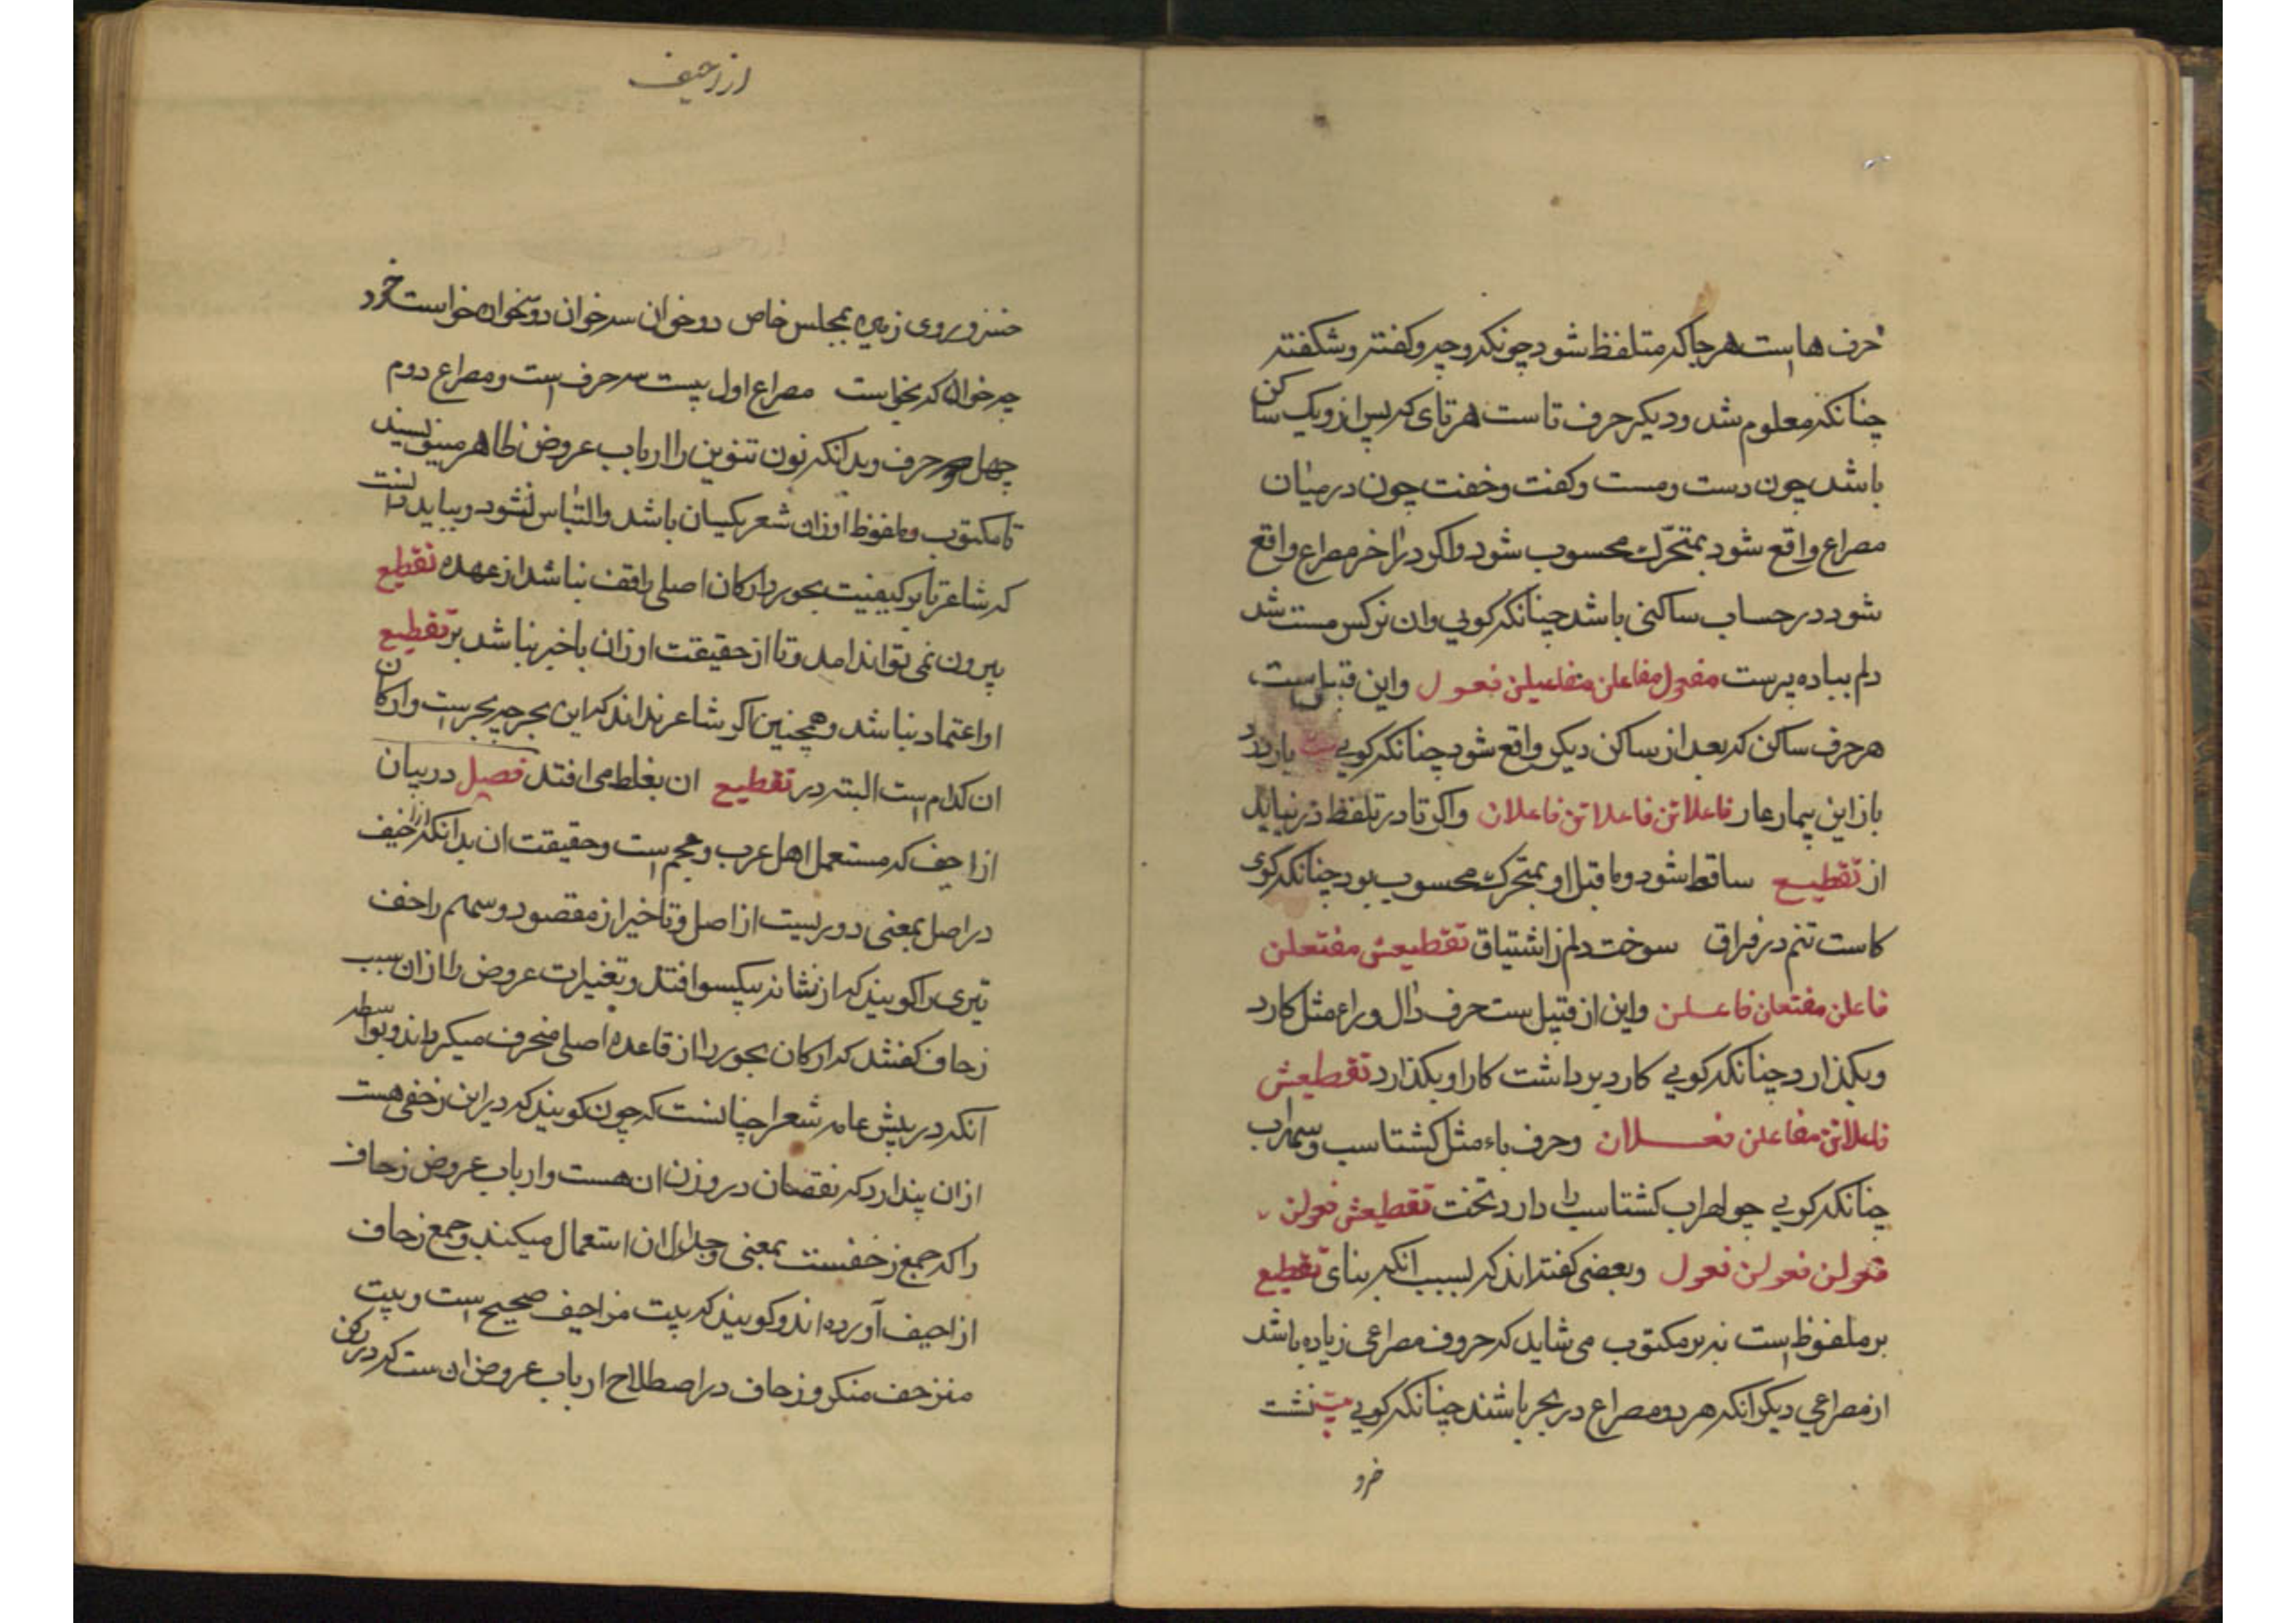 حرف ها است هرجا که متلفظ شود چونکه و چه و کفته و شکفته
چنانکه معلوم شد و دیکر حرف تا است هر تای که پس از و یک ساکن
باشد چون دست و مست و کفت و خفت چون در میان
مصراع واقع شود بمتحرّک محسوب شود و اکر در اخر مصراع واقع
شود در حساب ساکنی باشد چنانکه کویی وان نرکس مست شد
دلم بباده پرست مفعول مفاعلن مفاعیلن فعول واین قبیل است
هر حرف ساکن که بعد از ساکن دیکر واقع شود چنانکه کویی بیت یار ندارد
باز این بیمار عار فاعلاتن فاعلاتن فاعلات واکر تا در تلفظ در نیاید
از تقطیع ساقط شود و ما قبل او بمتحرک محسوب بود چنانکه کوی
کاست تنم در فراق سوخت دلم ز اشتیاق تقطیعش مفتعلن
فاعلن مفتعلن فاعلن واین از قبیل ست حرف دال و راء مثل کارد
و بکذارد چنانکه کویی کارد برداشت کار او بکذارد تقطیعش
فاعلاتن مفاعلن فعلان وحرف باء مثل کشتاسب و سهراب
چنانکه کویی چو لهراب کشتاسب را داد تخت تقطیعش فعولن
فعولن فعولن فعول وبعضی کفته اند که بسبب انکه بنای تقطیع
بر ملفوظ است نه بر مکتوب می شاید که حروف مصراعی زیاده باشد
از مصراعی دیکر انکه هر دو مصراع در بحر باشند چنانکه کویی بیت نشت
ازاحیف
خسرو روی زمین بمجلس خاص دو خوان سه خوان دو سه خوان خواست خرد
چه خوان که نخواست مصراع اول بیست سه حرف است و مصراع دوم
چهل حرف و بدانکه نون تنوین را ارباب عروض ظاهر مینویسند
تا مکتوب و ملفوظ اوزان شعر یکسان باشد والتباس نشود و بباید دانست
که شاعر تا بر کیفیت بحور و ارکان اصلی واقف نباشد از عهده تقطیع
بیرون نمی تواند امد و تا از حقیقت اوزان باخبر نباشد بر تقطیع
او اعتماد نباشد و همچنین اکر شاعر نداند که این بحر چه بحر ست وارکان
ان کدام است البته در تقطیع ان بغلط می افتد فصل در بیان
ازاحیف که مستعمل اهل عرب و عجم است و حقیقت ان بدانکه ازاحیف
در اصل بمعنی دوریست از اصل و تاخیر از مقصود و سهم زاحف
تیری را کویند که از نشانه بیکسو افتد و تغیرات عروض را از ان سبب
زحاف کفتند که ارکان بحور را از قاعده اصلی منحرف میکرداند و بواسطه
آنکه در پیش عامه شعرا چنانست که چون کویند که در این زحفی هست
از ان پندارد که نقصان در وزن ان هست و ارباب عروض زحاف
را که جمع زحفست بمعنی ان استعمال میکنند و جمع زحاف
ازاحیف آورده اند و کویند که بیت مزاحیف صحیح است و بیت
منزحف منکر و زحاف در اصطلاح ارباب عروض ان ست که در رکن